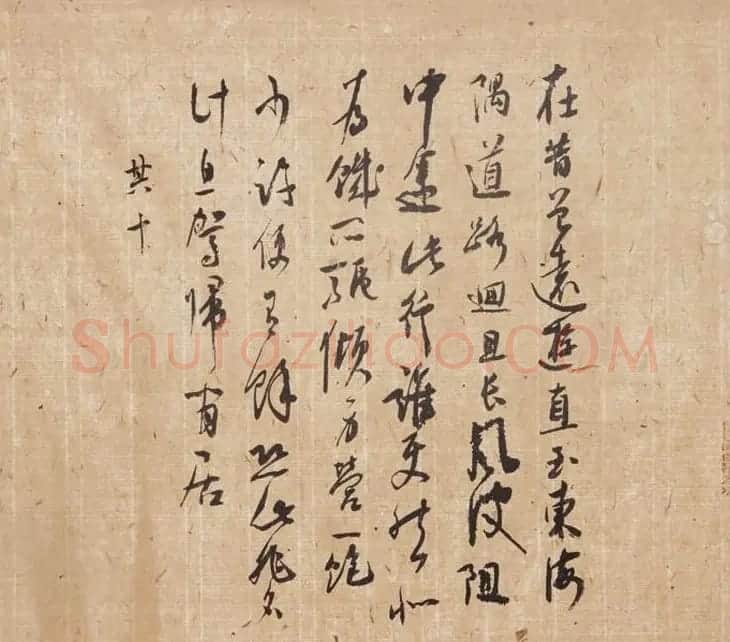 在昔曾遠遊直至東海
隅道路迴且長風波阻
中途此行誰使然似
為饑所驅傾身營一飽
少許便有餘恐此非名
計息駕歸閒居
其十
Shufaziliao.COM